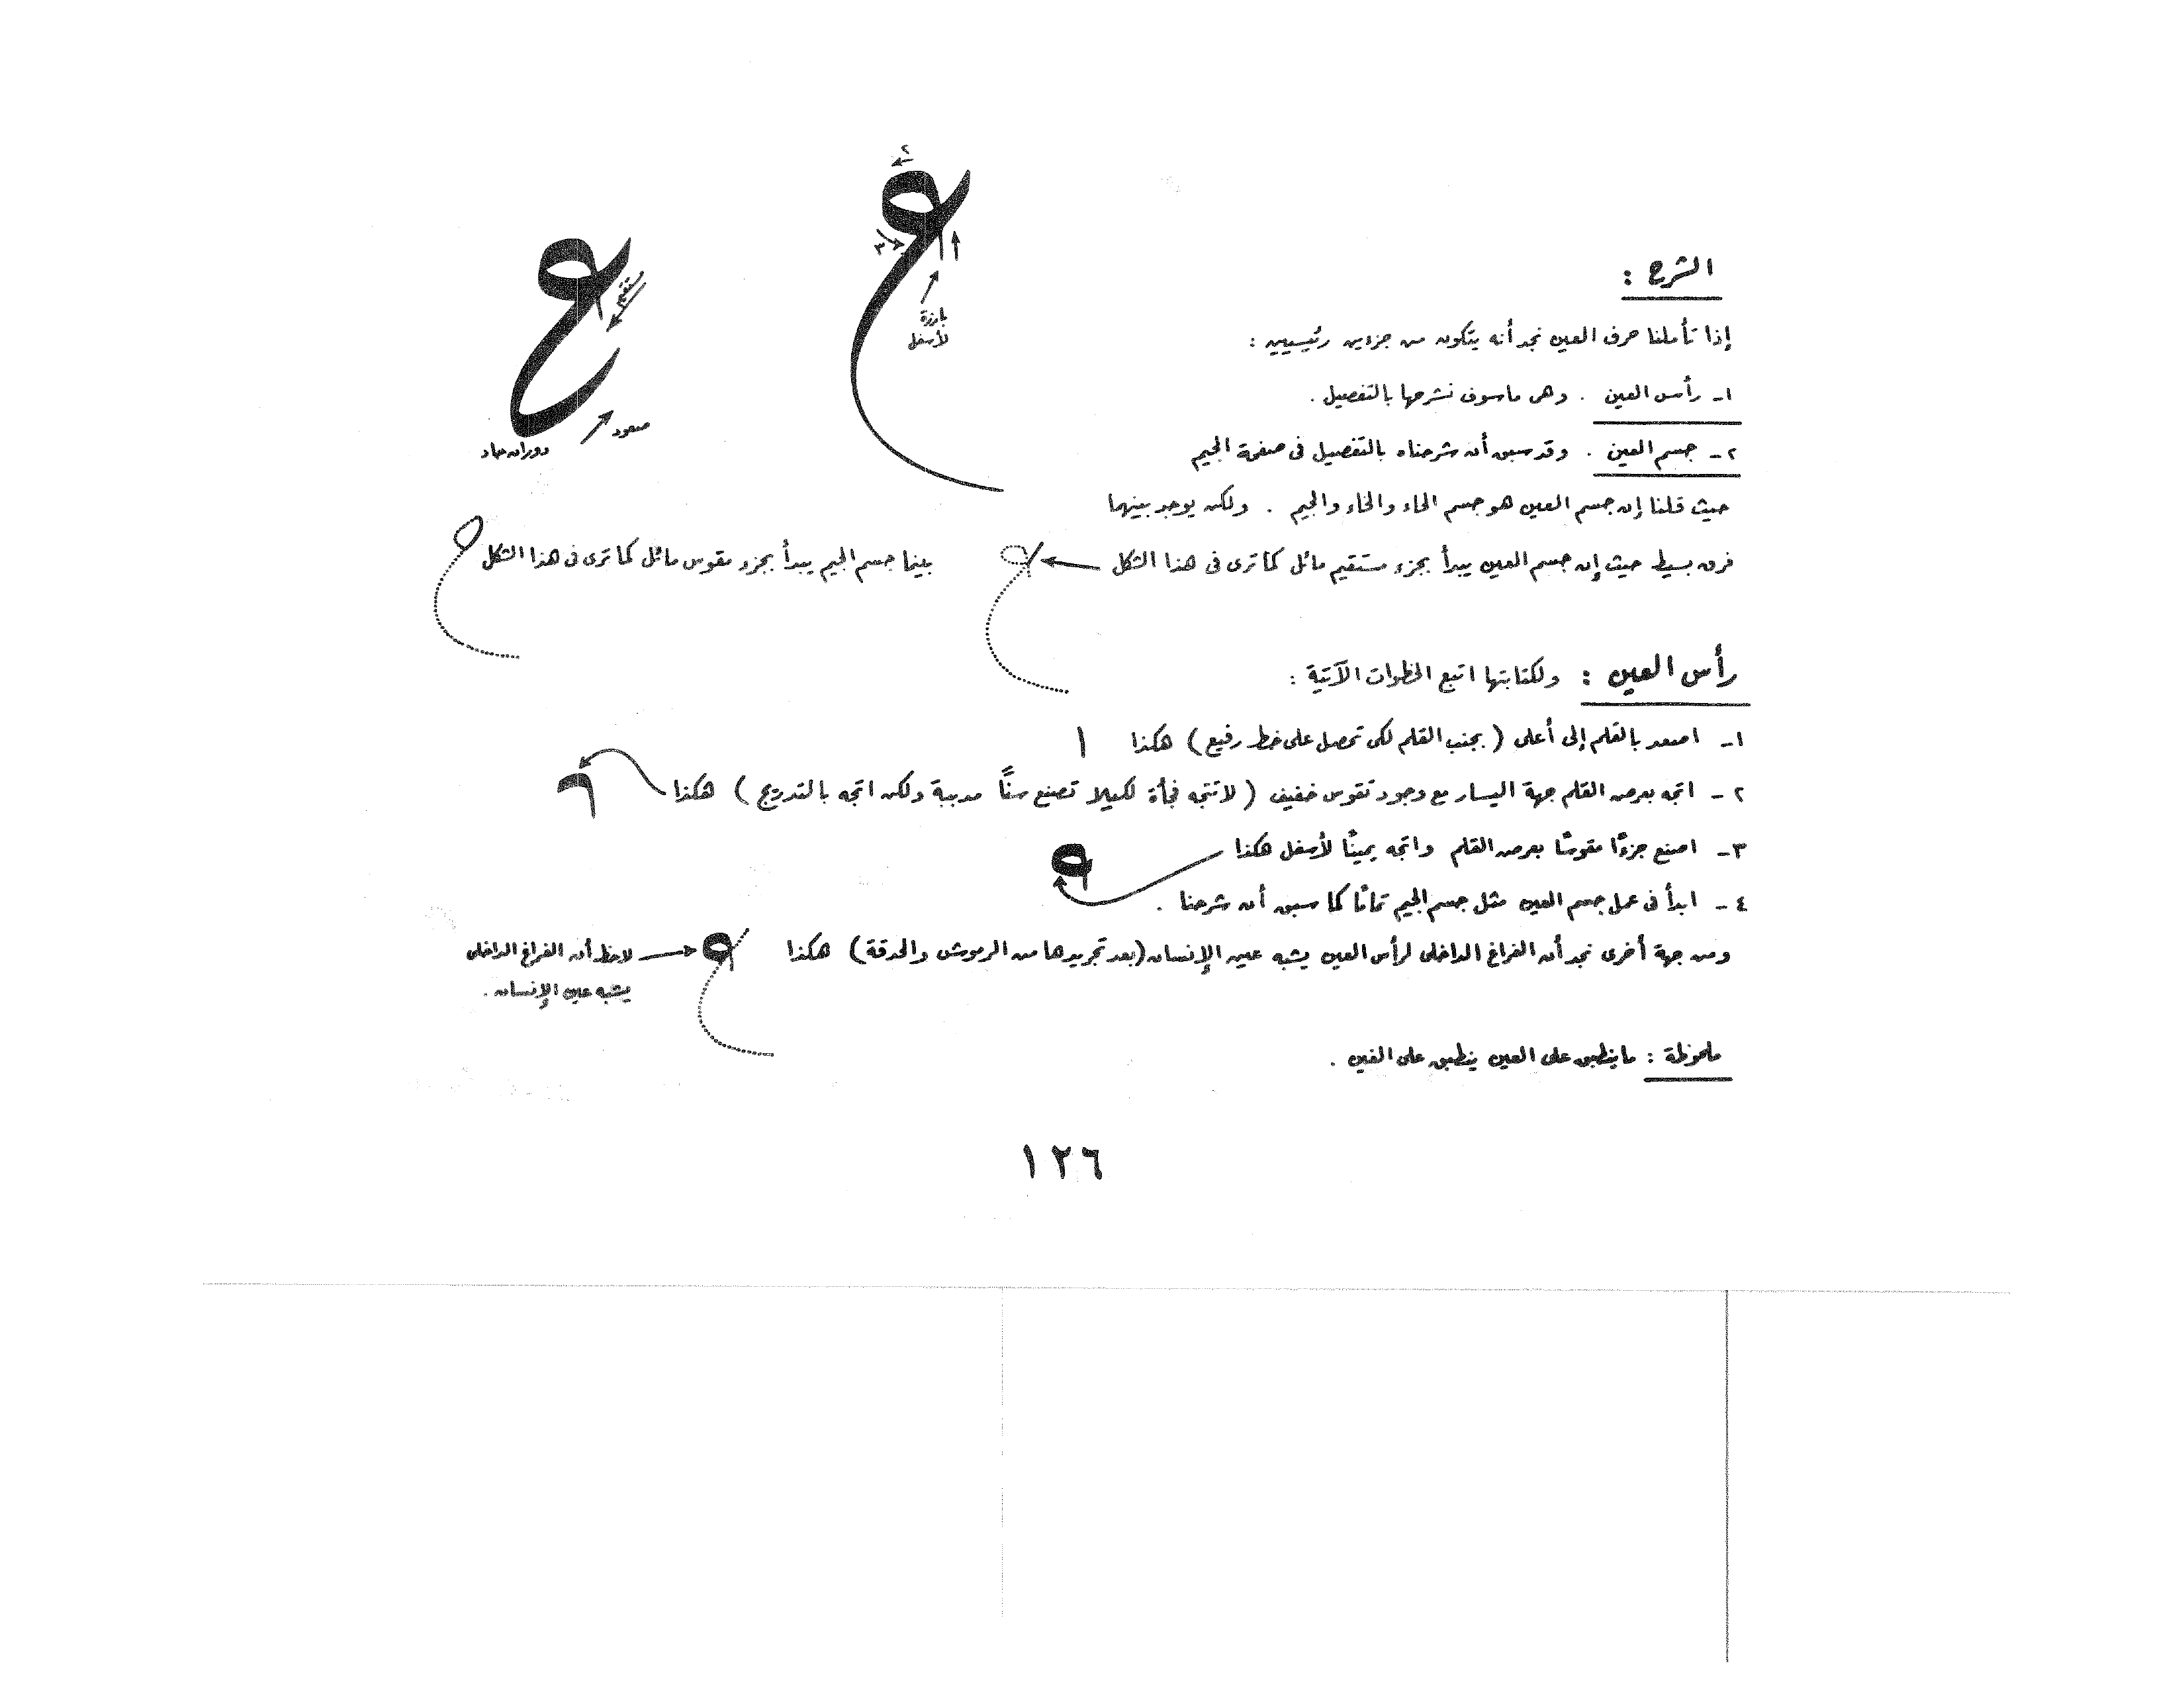 ع
٢
٣
١
بارزة
لأسفل
ع
مستقيم
صعود
دوران حاد
الشرح :
إذا تأملنا حرف العين نجد أنه يتكون من جزءين رئيسيين :
١- رأس العين . وهى ما سوف نشرحها بالتفصيل .
٢- جسم العين . وقد سبق أن شرحناه بالتفصيل فى صفحة الجيم
حيث قلنا إن جسم العين هو جسم الحاء والخاء والجيم . ولكن يوجد بينهما
فرق بسيط حيث إن جسم العين يبدأ بجزء مستقيم مائل كما ترى فى هذا الشكل بينما جسم الجيم يبدأ بجزء مقوس مائل كما ترى فى هذا الشكل
رأس العين : ولكتابتها اتبع الخطوات الآتية :
١- اصعد بالقلم إلى أعلى ( بجنب القلم لكى تحصل على خط رفيع ) هكذا
٢- اتجه بعرض القلم جهة اليسار مع وجود تقوس خفيف ( لا تتجه فجأة لكيلا تصنع سنًّا مدببة ولكن اتجه بالتدريج ) هكذا
٣- اصنع جزءًا مقوسًا بعرض القلم واتجه يمينًا لأسفل هكذا
٤- ابدأ فى عمل جسم العين مثل جسم الجيم تمامًا كما سبق أن شرحنا .
ومن جهة أخرى نجد أن الفراغ الداخلى لرأس العين يشبه عين الإنسان (بعد تجريدها من الرموش والحدقة) هكذا
لاحظ أن الفراغ الداخلى
يشبه عين الإنسان .
ملحوظة : ما ينطبق على العين ينطبق على الغين .
١٢٦